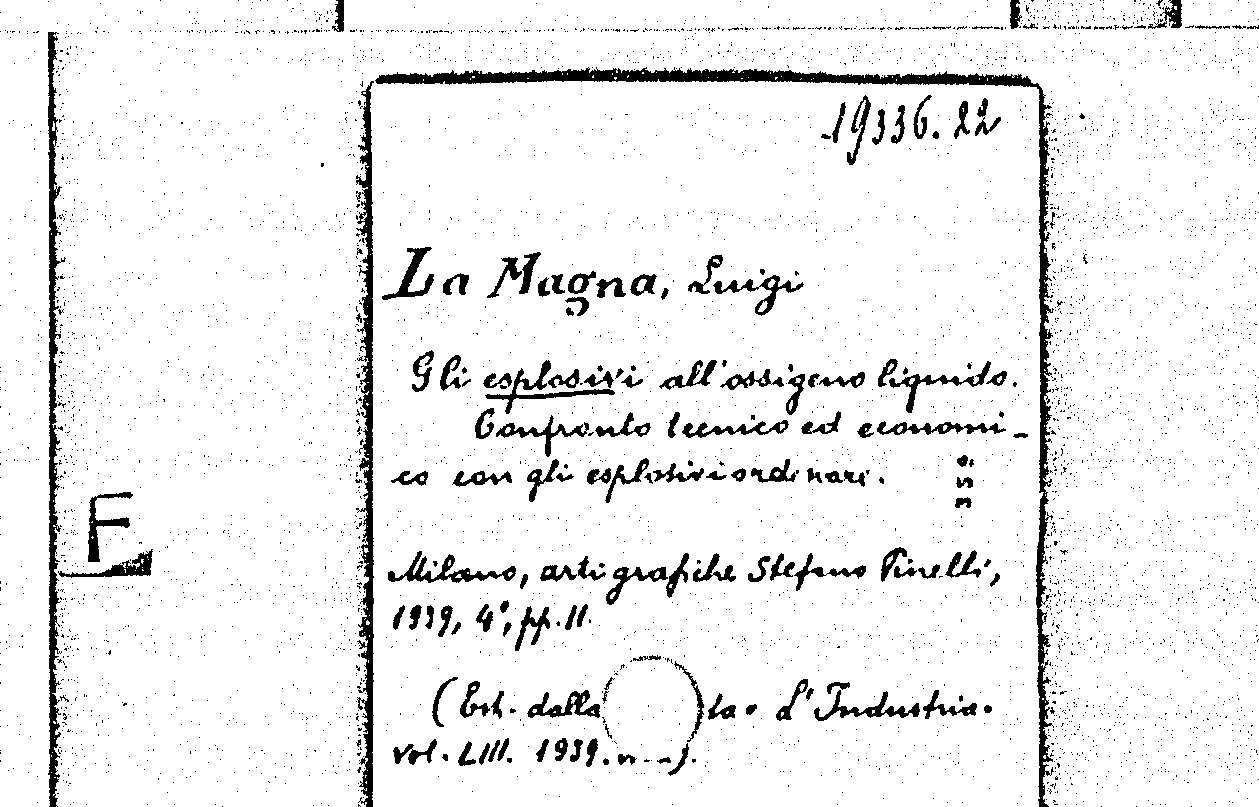 19336.22
La Magna, Luigi
Gli esplosivi all'ossigeno liquido.
Confronto tecnico ed economi-
co con gli esplosivi ordinari.
350
F
Milano, arti grafiche Stefano Pinelli,
1939, 4°, pp. 11.
(Est. dalla ta. L'Industria.
vol. LIII. 1939. n. ).